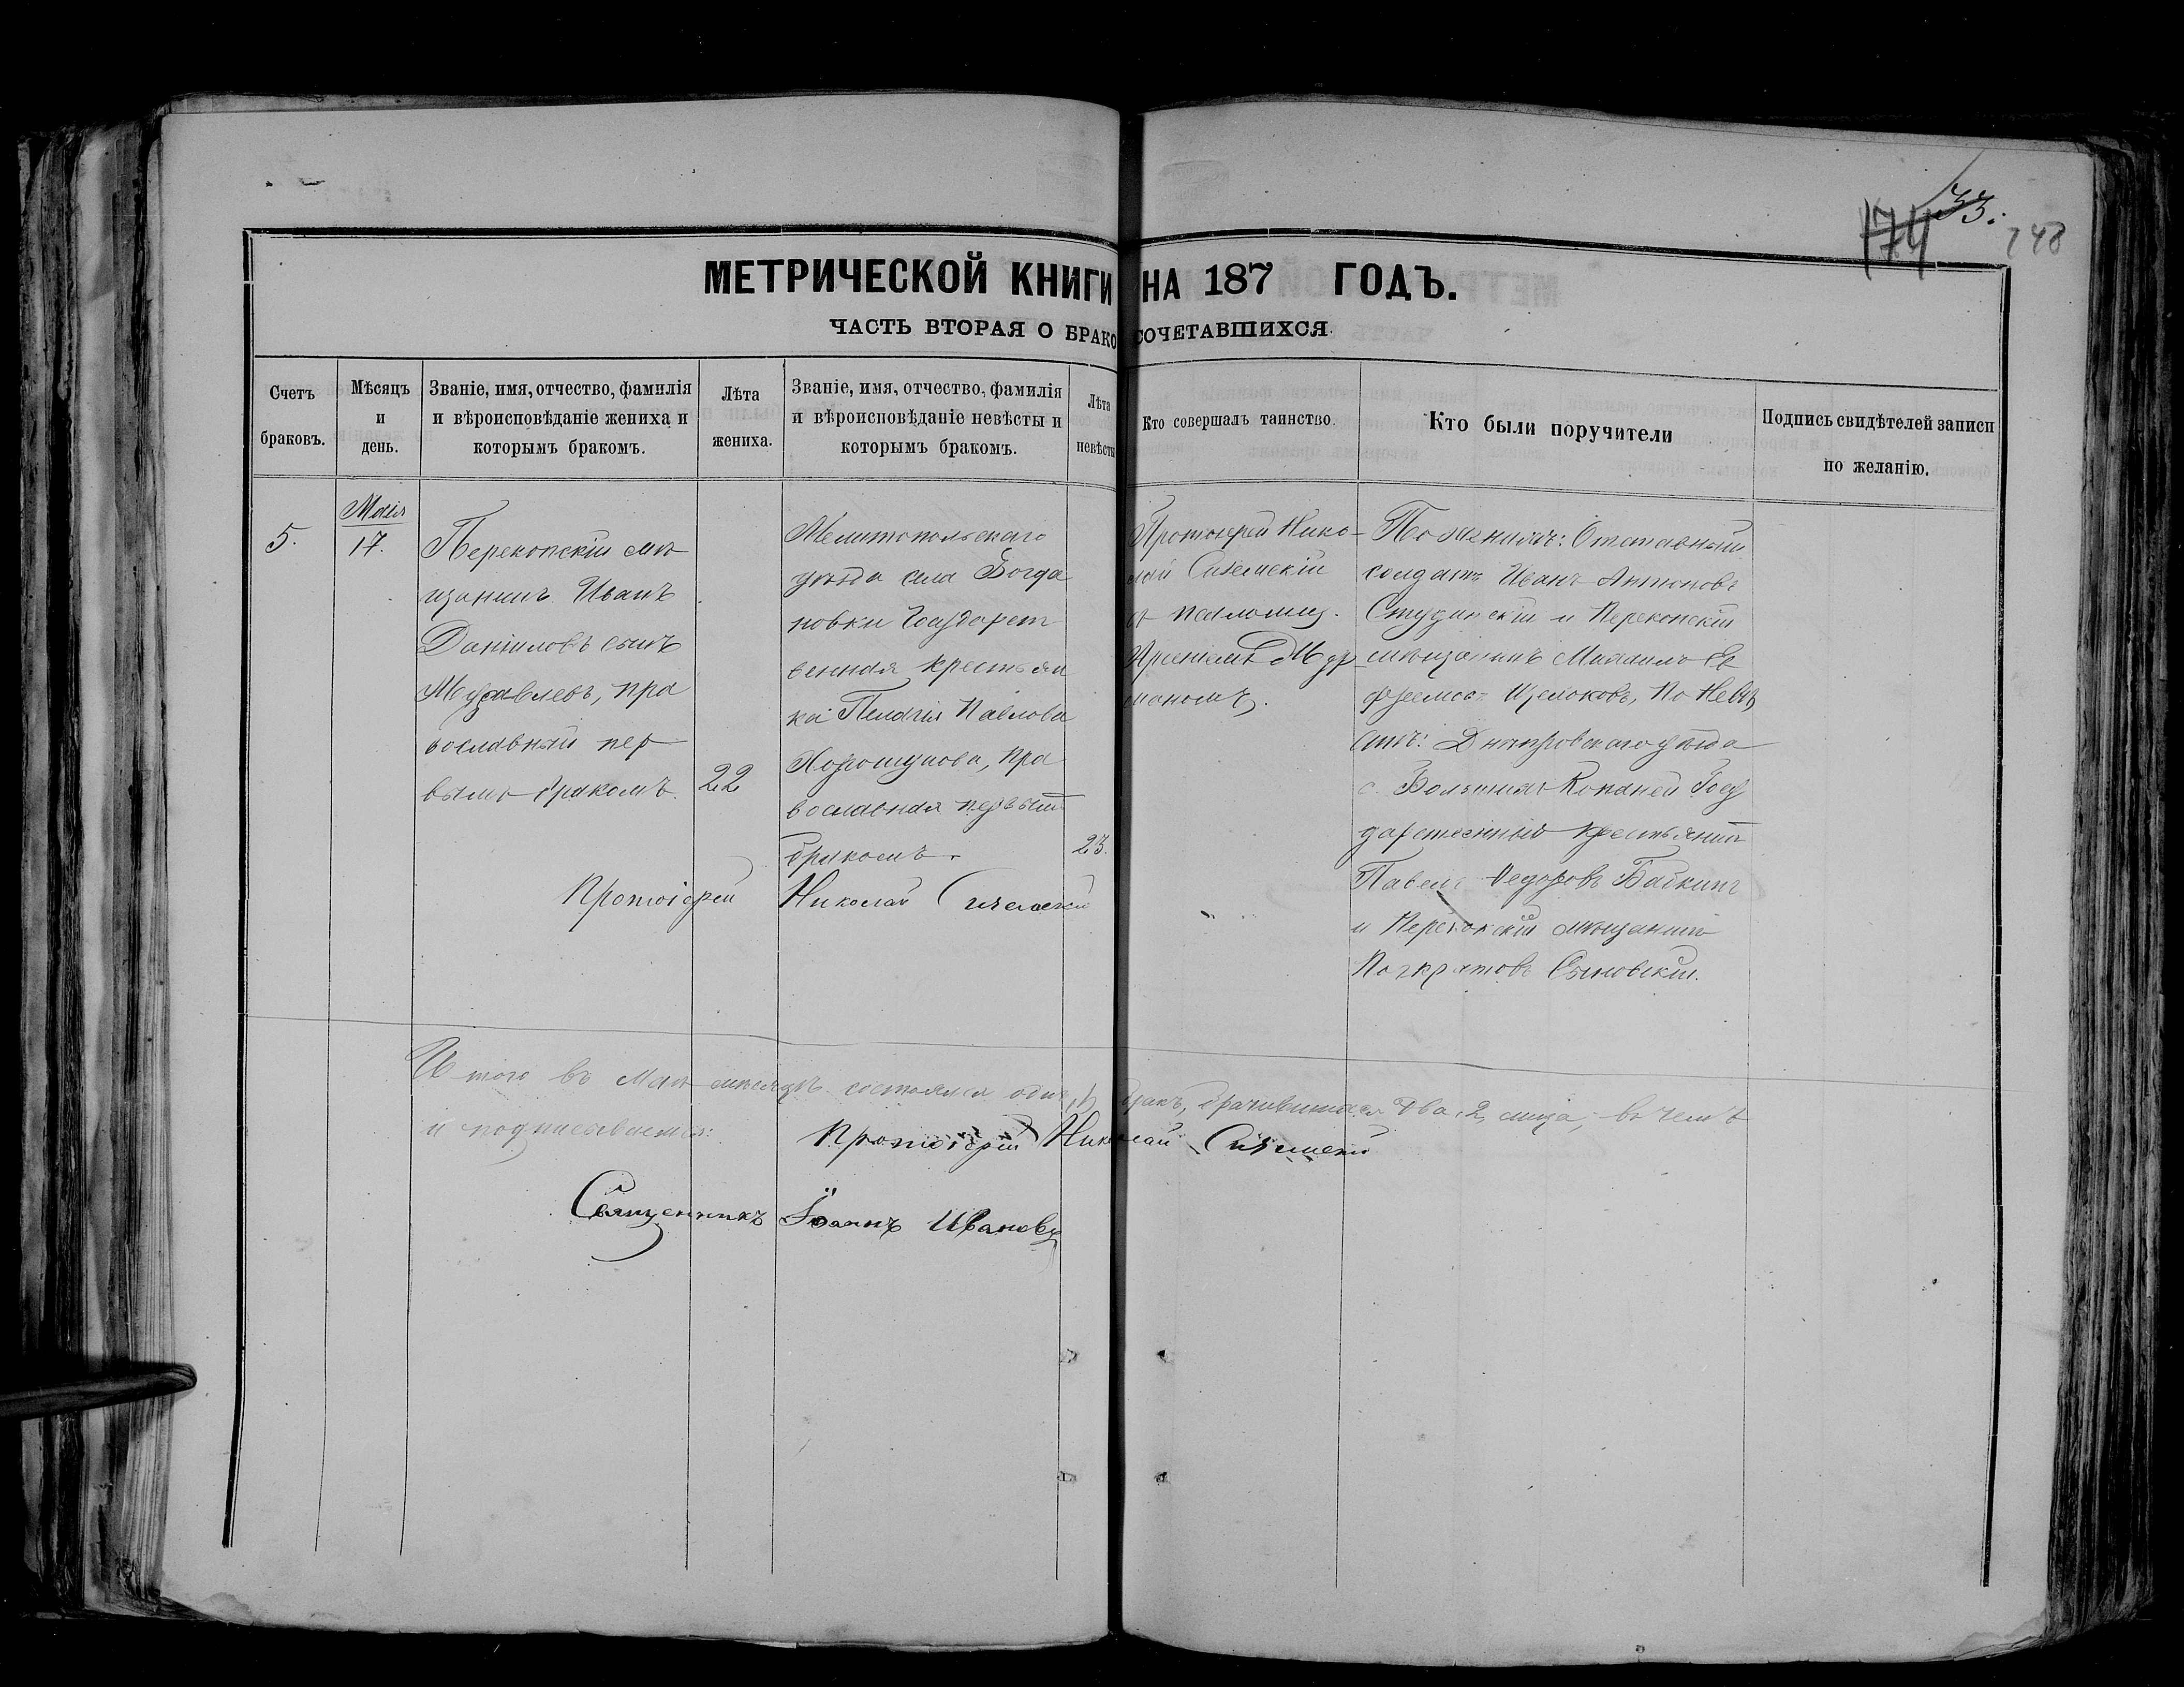 33.
174
248
МЕТРИЧЕСКОЙ КНИГИ НА 187 ГОДЪ.
ЧАСТЬ ВТОРАЯ О БРАКОСОЧЕТАВШИХСЯ.
Счетъ
браковъ.
Мѣсяцъ
и
день.
Званіе, имя, отчество, фамилія
и вѣроисповѣданіе жениха и
которымъ бракомъ.
Лѣта
жениха.
Званіе, имя, отчество, фамилія
и вѣроисповѣданіе невѣсты и
которымъ бракомъ.
Лѣта
невѣсты
Кто совершалъ таинство.
Кто были поручители
Подпись свидѣтелей записи
по желанію.
5.
Маія
17.
Перекопскій мѣ
щанинъ Иванъ
Даніиловъ сынъ
Журавлевъ, пра
вославный пер
вымъ бракомъ.
22
Мелитопольскаго
уѣзда села Богда
новки Государст
венная крестьян
ка Пелагія Павлова
Хорошунова, пра
вославная первымъ
бракомъ.
23.
Протоіерей Нико-
лай
съ псаломщ.
Арсеніемъ
По женихѣ: Отставный
солдатъ Иванъ Антоновъ
и Перекопскій
мѣщанинъ Михаилъ Е
Щелоковъ, По невѣ
стѣ: Днѣпровскаго уѣзда
с. Большихъ Копаней Госу
дарственный крестьянинъ
Павелъ Ѳедоровъ Бабкинъ
и Перекопскій мѣщанинъ
Протоіерей Николай
Итого въ Маѣ мѣсяцѣ состоялся одинъ, 1, бракъ, брачившихся два, 2, лица, въ чемъ
и подписываемся:
Протоіерей Николай
Священникъ Іоаннъ Ивановъ